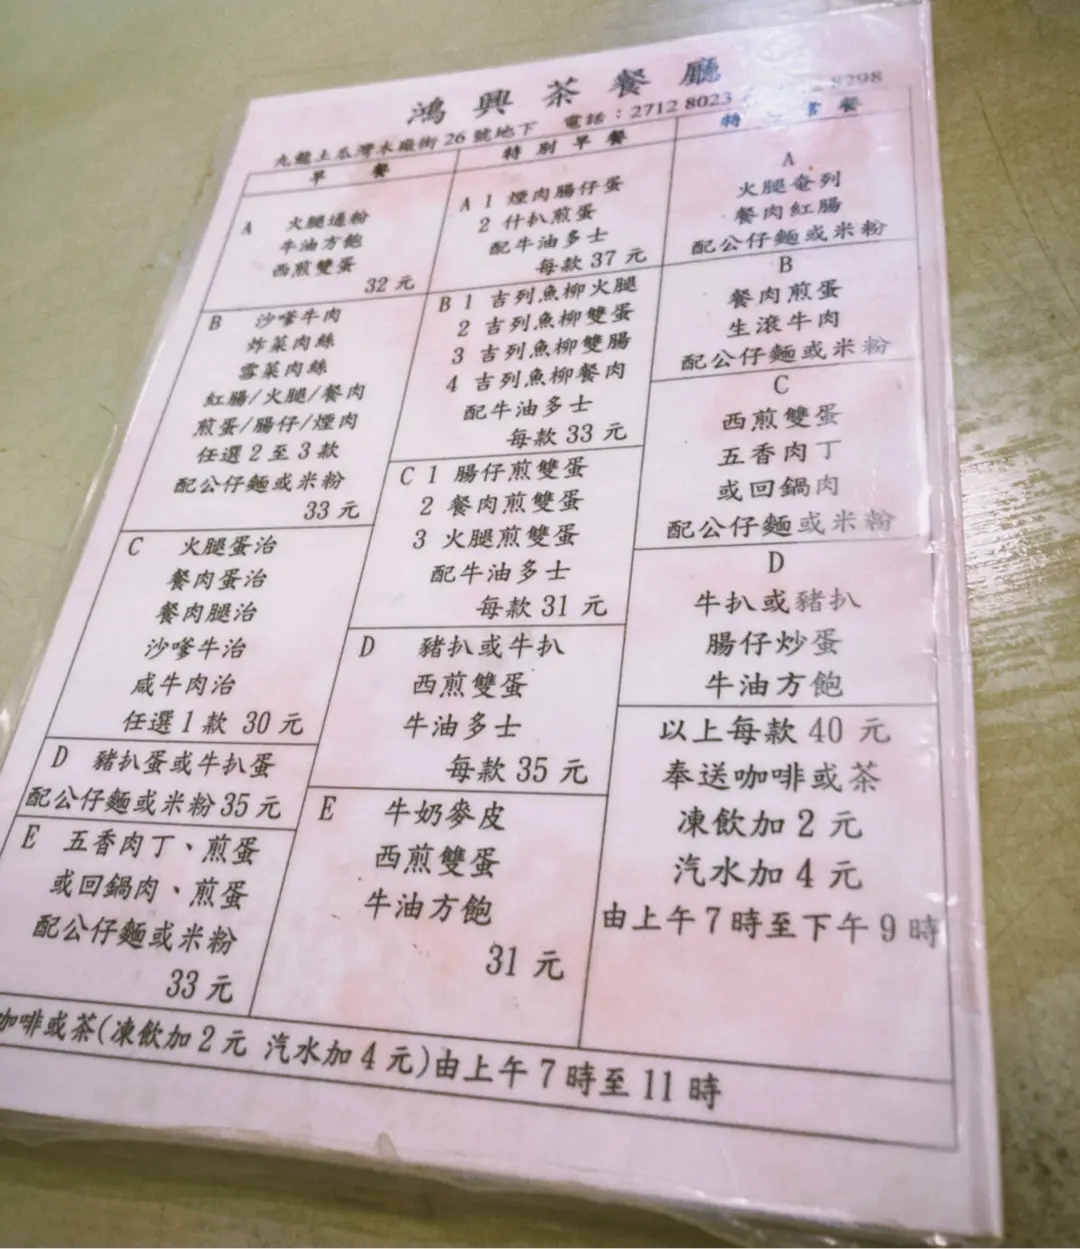 鴻興茶餐廳
九龍土瓜灣木廠街26號地下 電話：2712 8023 8298
早餐
A 火腿通粉
牛油方飽
西煎雙蛋
32元
B 沙嗲牛肉
炸菜肉絲
雪菜肉絲
紅腸/火腿/餐肉
煎蛋/腸仔/煙肉
任選2至3款
配公仔麵或米粉
33元
C 火腿蛋治
餐肉蛋治
餐肉腿治
沙嗲牛治
咸牛肉治
任選1款 30元
D 豬扒蛋或牛扒蛋
配公仔麵或米粉35元
E 五香肉丁、煎蛋
或回鍋肉、煎蛋
配公仔麵或米粉
33元
特別早餐
A 1 煙肉腸仔蛋
2 什扒煎蛋
配牛油多士
每款37元
B 1 吉列魚柳火腿
2 吉列魚柳雙蛋
3 吉列魚柳雙腸
4 吉列魚柳餐肉
配牛油多士
每款33元
C 1 腸仔煎雙蛋
2 餐肉煎雙蛋
3 火腿煎雙蛋
配牛油多士
每款31元
D 豬扒或牛扒
西煎雙蛋
牛油多士
每款35元
E 牛奶麥皮
西煎雙蛋
牛油方飽
31元
特 常餐
A
火腿奄列
餐肉紅腸
配公仔麵或米粉
B
餐肉煎蛋
生滾牛肉
配公仔麵或米粉
C
西煎雙蛋
五香肉丁
或回鍋肉
配公仔麵或米粉
D
牛扒或豬扒
腸仔炒蛋
牛油方飽
以上每款40元
奉送咖啡或茶
凍飲加2元
汽水加4元
由上午7時至下午9時
咖啡或茶(凍飲加2元 汽水加4元)由上午7時至11時